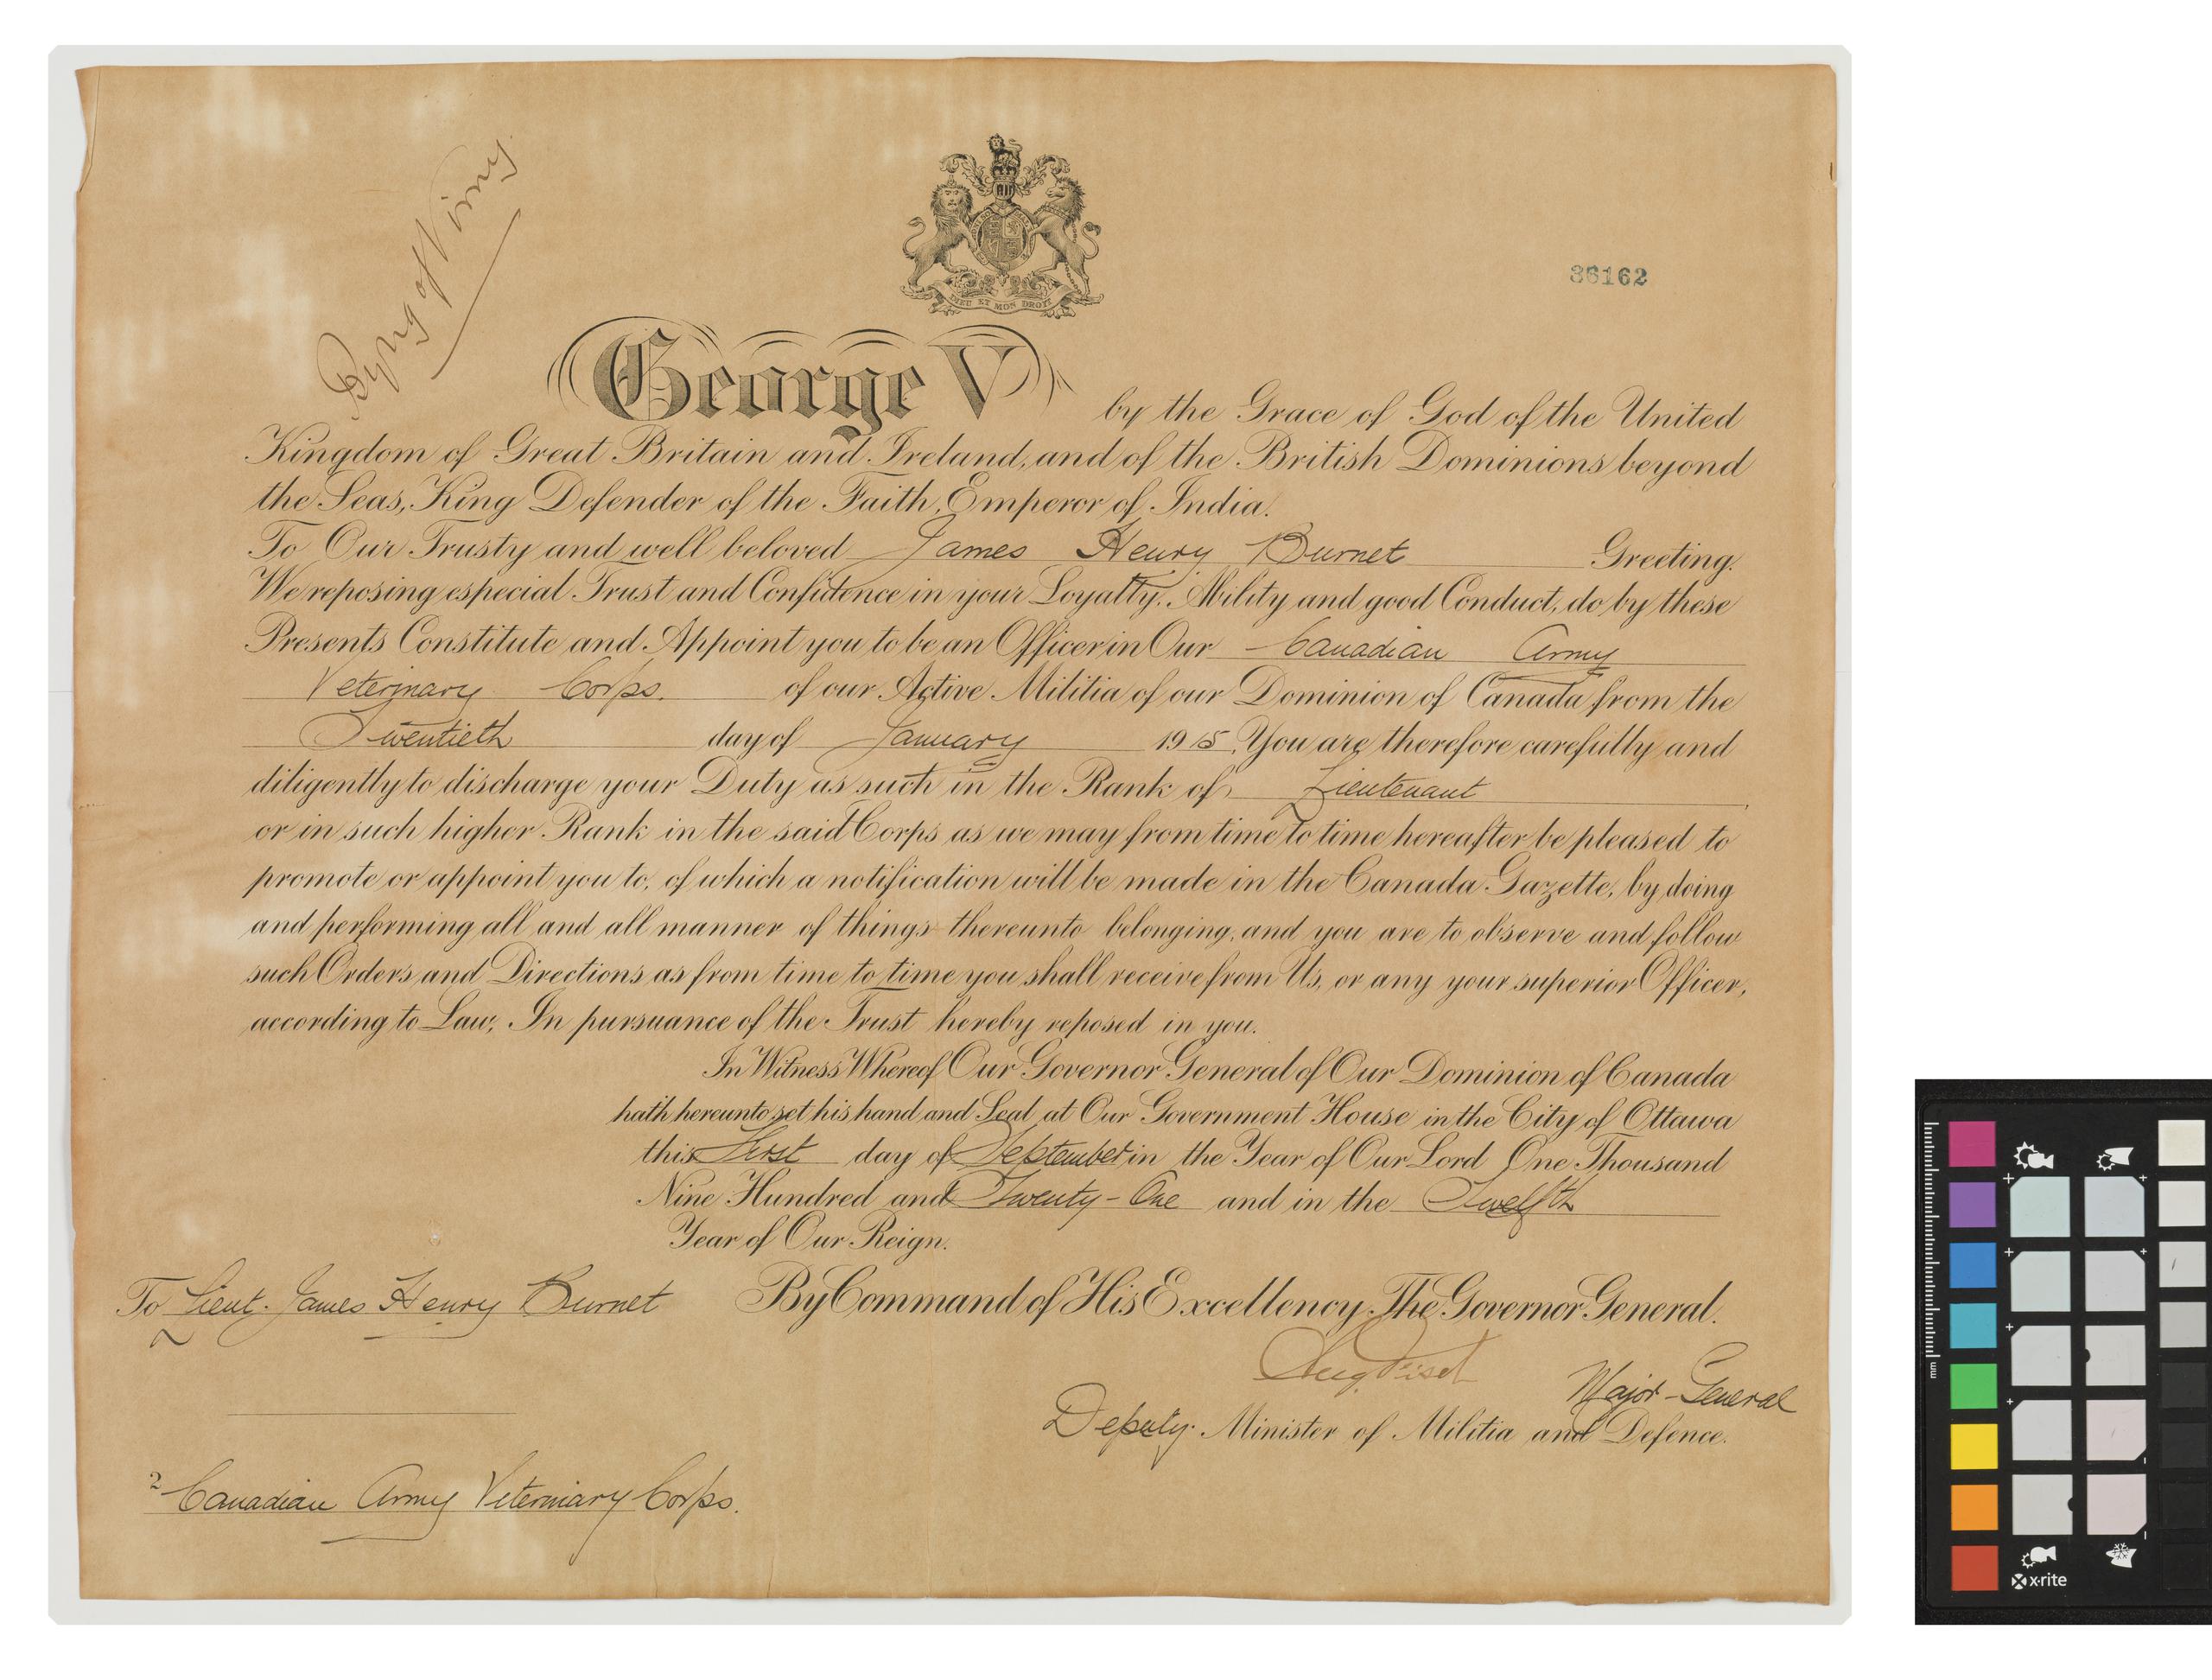 Byng of Vimy
DIEU ET MON DROIT
36162
George V by the Grace of God of the United
Kingdom of Great Britain and Ireland, and of the British Dominions beyond
the Seas, King Defender of the Faith, Emperor of India.
To Our Trusty and well beloved James Henry Burnet Greeting.
We reposing especial Trust and Confidence in your Loyalty, Ability and good Conduct, do by these
Presents Constitute and Appoint you to be an Officer in Our Canadian Army
Veterinary Corps. of our Active Militia of our Dominion of Canada from the
Twentieth day of January 1915. You are therefore carefully and
diligently to discharge your Duty as such in the Rank of Lieutenant
or in such higher Rank in the said Corps as we may from time to time hereafter be pleased to
promote or appoint you to, of which a notification will be made in the Canada Gazette, by doing
and performing all and all manner of things thereunto belonging, and you are to observe and follow
such Orders and Directions as from time to time you shall receive from Us, or any your superior Officer,
according to Law, In pursuance of the Trust hereby reposed in you.
In Witness Whereof Our Governor General of Our Dominion of Canada
hath hereunto set his hand and Seal at Our Government House in the City of Ottawa
this First day of September in the Year of Our Lord One Thousand
Nine Hundred and Twenty-One and in the Twelfth
Year of Our Reign.
To Lieut. James Henry Burnet
By Command of His Excellency The Governor General.
Eug. Fiset
Major-General
Deputy Minister of Militia and Defence.
2 Canadian Army Veterinary Corps.
mm
x-rite